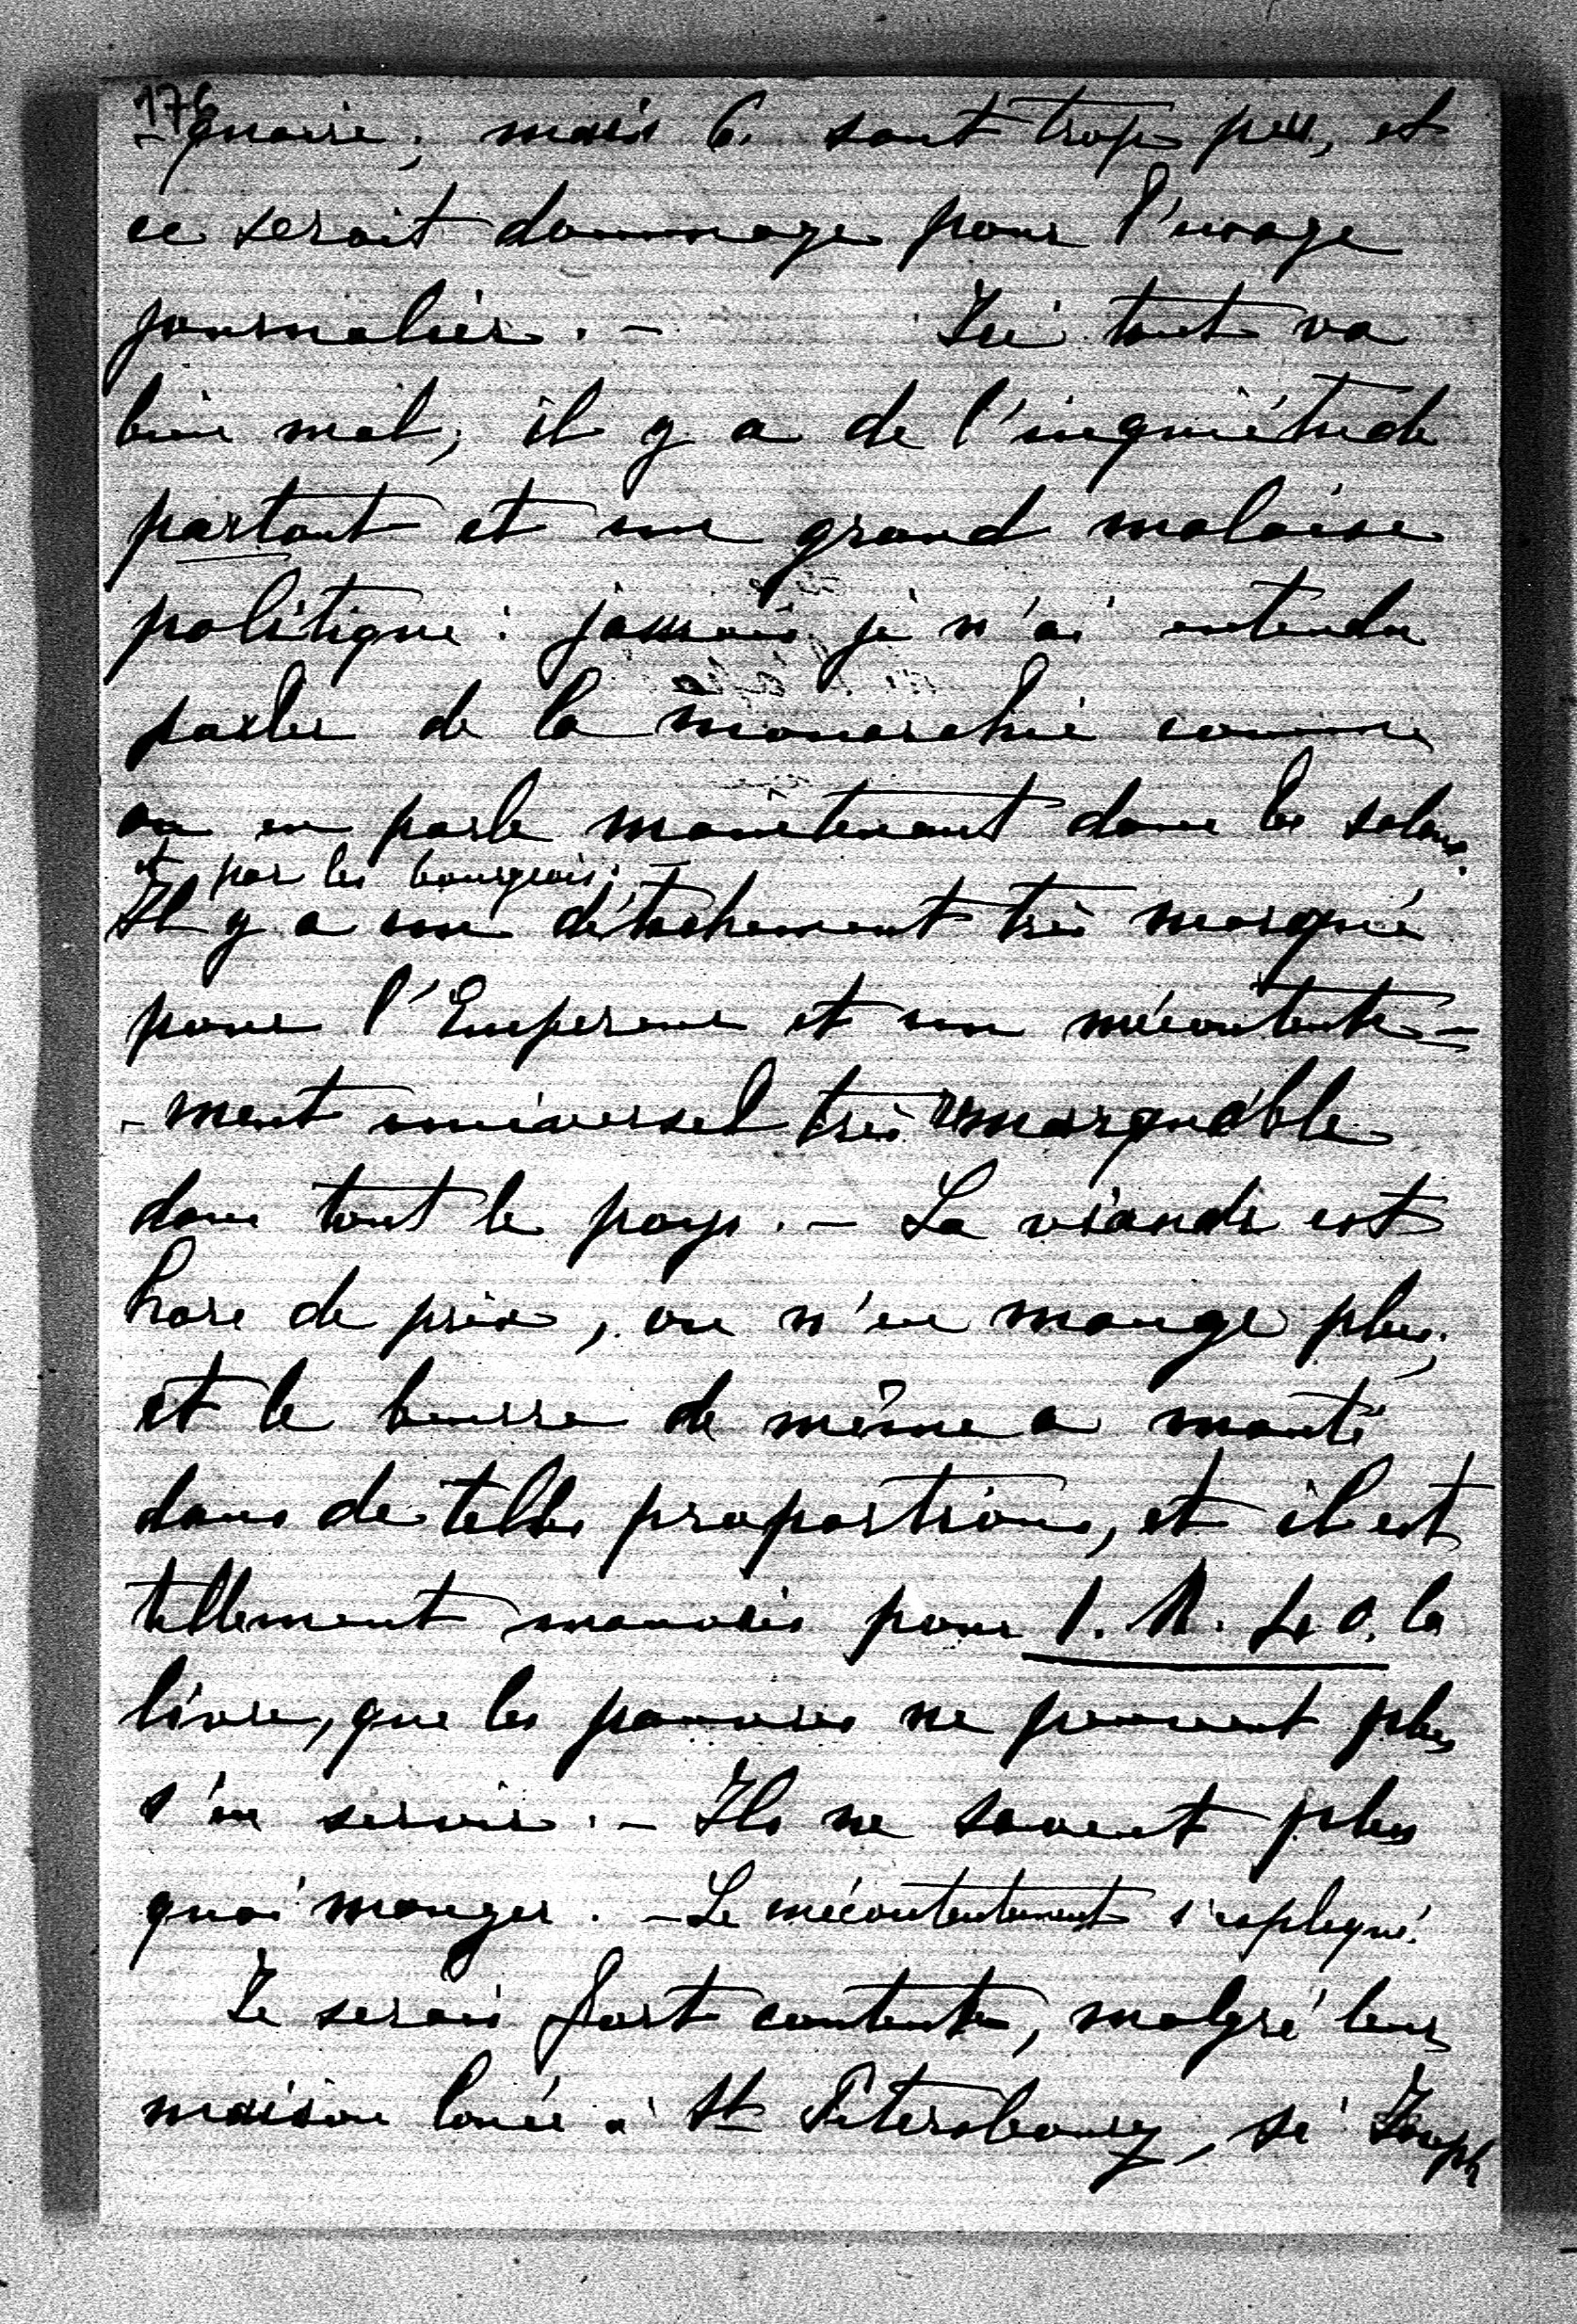 176
- gnoire; mais 6. sont trop peu, et
ce serait dommage pour l'usage
journalier. - Ici tout va
bien mal; il y a de l'inquiétude
partout et un grand malaise
politique: jamais je n'ai entendu
parler de la monarchie comme
on en parle maintenant dans les salons.
et par les bourgeois. -
Il y a un détachement très marqué
pour l'Empereur et un mécontente-
-ment universel très remarquable
dans tout le pays. - La viande est
hors de prix, on n'en mange plus;
et le beurre de même a monté
dans de telles proportions, et il est
tellement mauvais pour 1. M. 40. la
livre, que les pauvres ne peuvent plus
s'en servir. - Ils ne savent plus
quoi manger. - Le mécontentement s'explique.
Je serais fort contente, malgré leur
maison louée à St Petersbourg, si Joseph